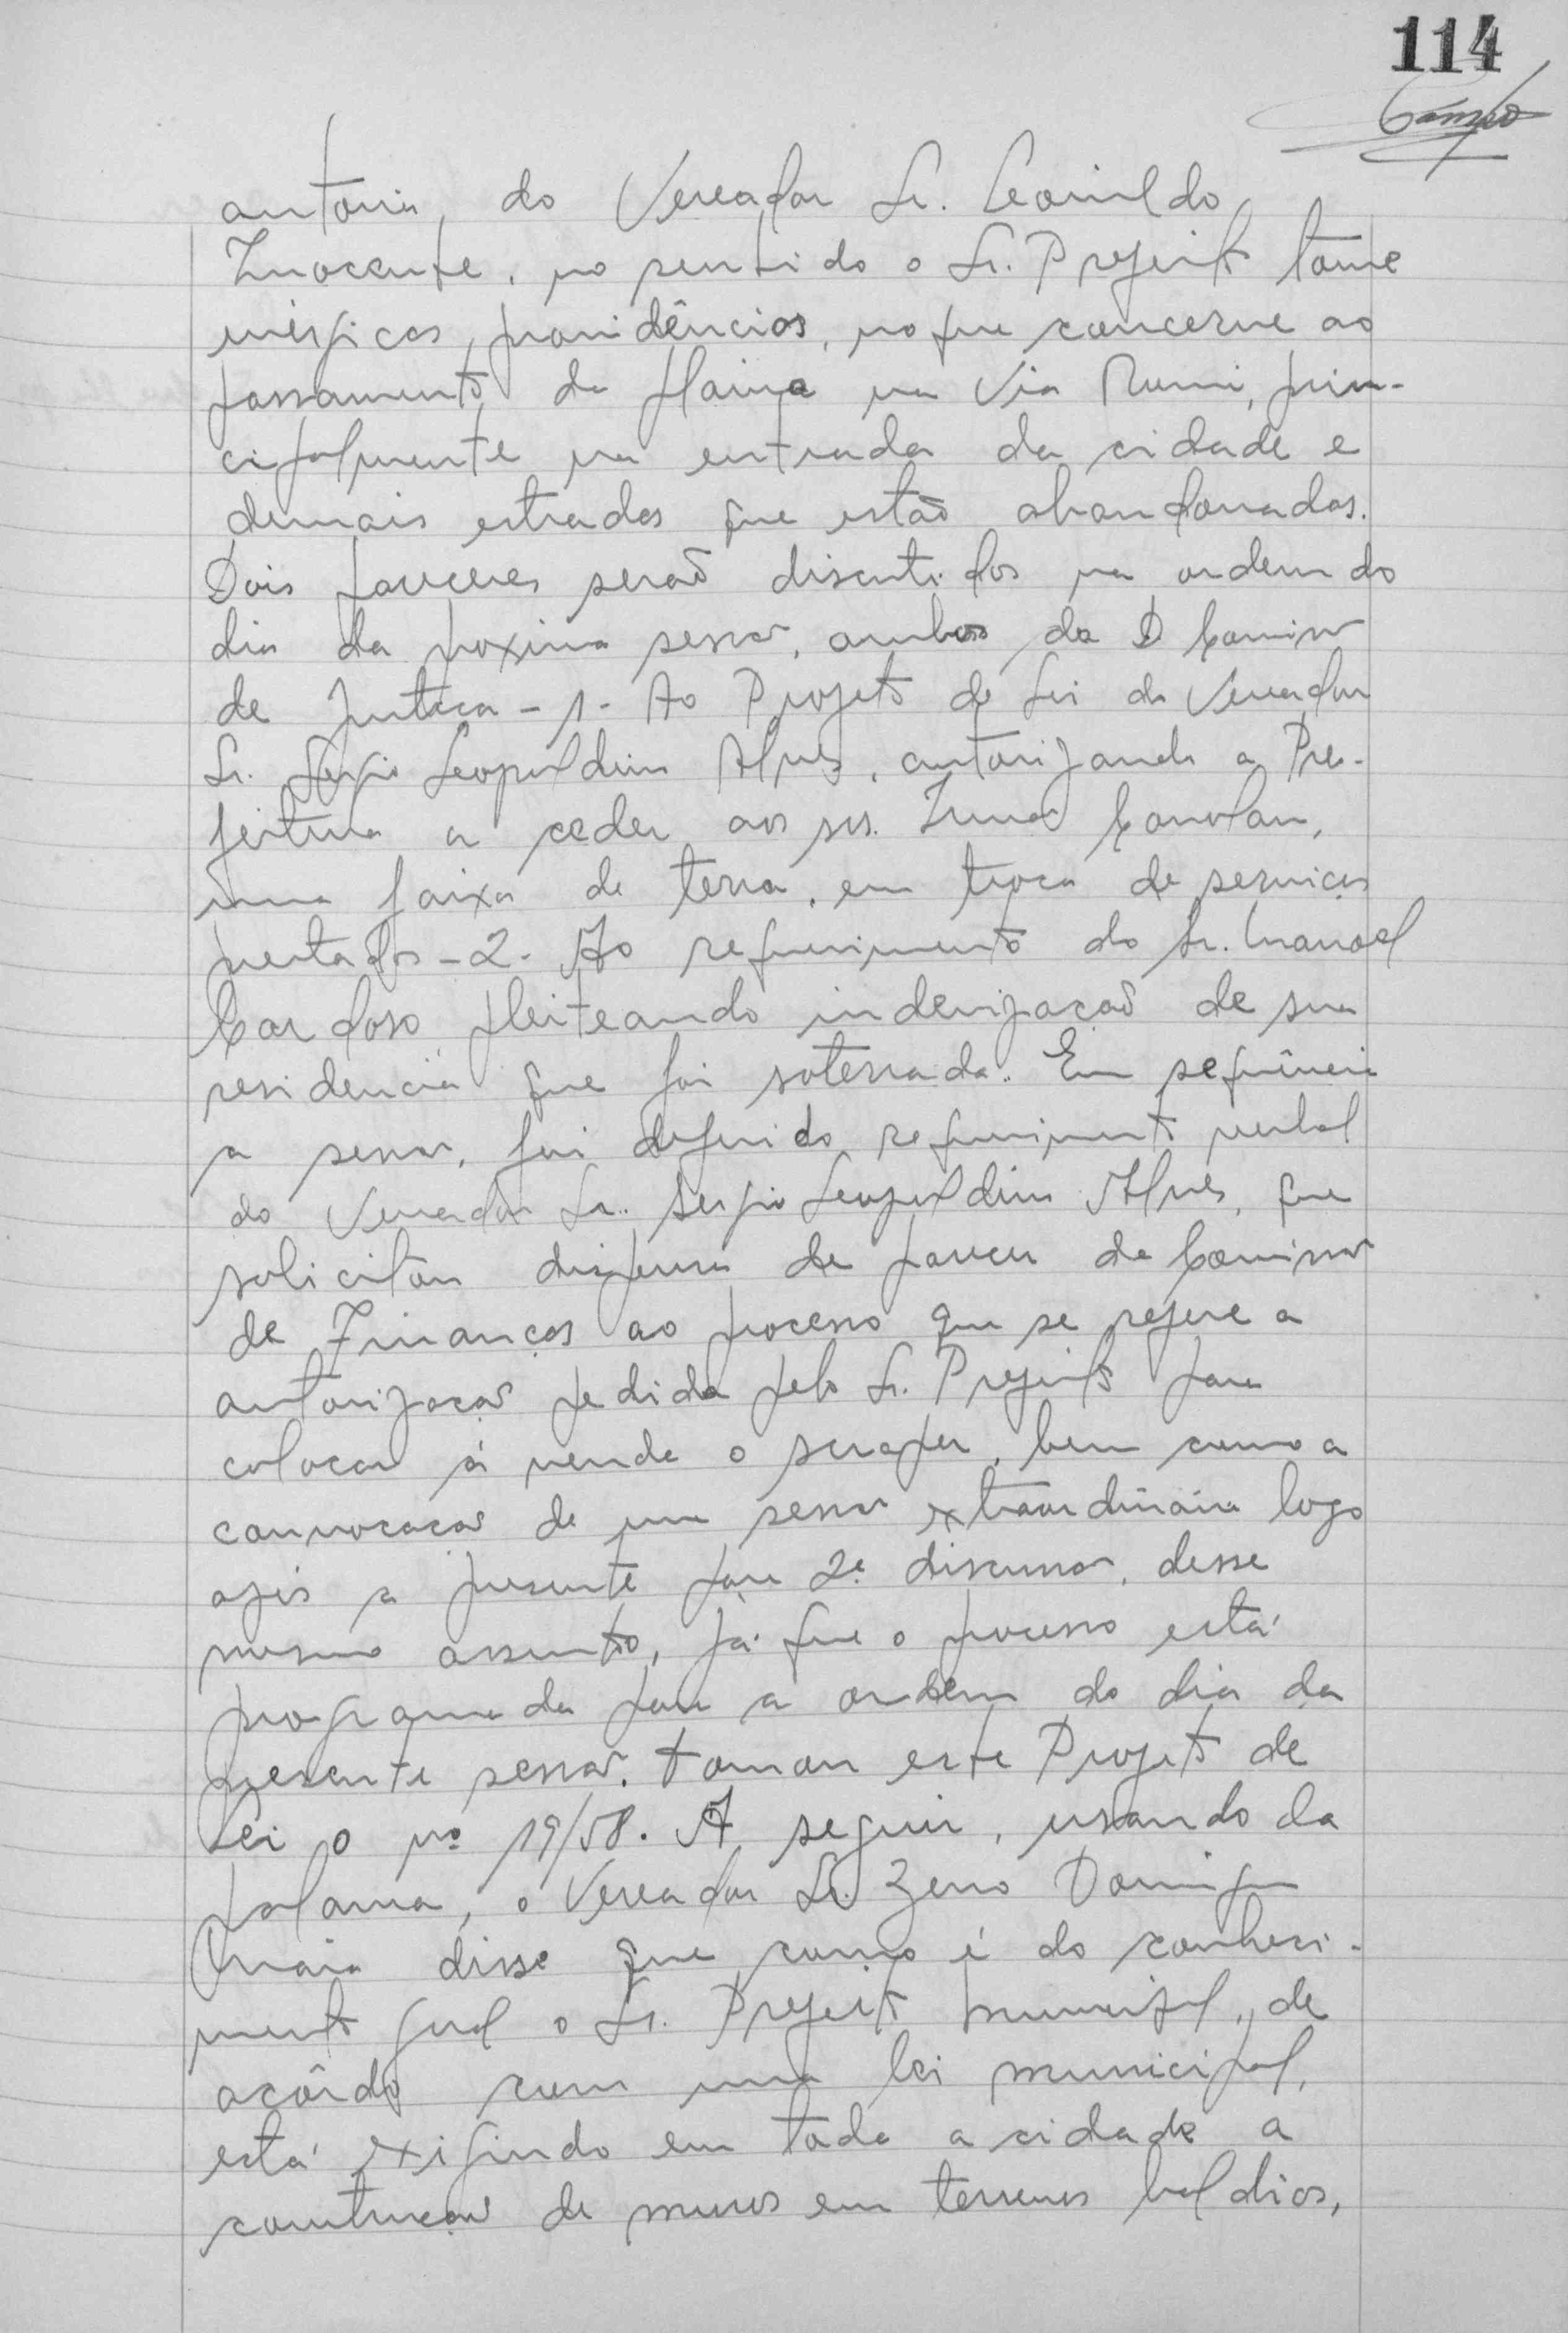 114
autoria, do Vereador Sr. Leonildo
Inocente, no sentido o Sr. Prefeito tome
enérgicas providências, no que concerne ao
passamento da plaina na Via Rumi, prin-
cipalmente na entrada da cidade e
demais estradas que estão abandonadas.
Dois pareceres serão discutidos na ordem do
dia da proxima sessão, ambos da D Comissão
de Justiça - 1 - Ao Projeto de Lei do Vereador
Sr. Sergio Leopoldino Alves, autorizando a Pre-
feitura a ceder aos srs. Irmãos
uma faixa de terra, em troca de serviços
prestados - 2 - Ao requerimento do Sr. Manoel
Cardoso pleiteando indenização de sua
residencia que foi soterrada. Em sequência
a sessão, foi deferido requerimento verbal
do Vereador Sr. Sergio Leopoldino Alves, que
solicitou dispensa de parecer da Comissão
de Finanças ao processo que se refere a
autorização pedida pelo Sr. Prefeito para
colocar à venda o scraper, bem como a
convocação de uma sessão extraordinária logo
após a presente para 2ª discussão, desse
mesmo assunto, já que o processo está
programada para a ordem do dia da
presente sessão. tomou este Projeto de
Lei o nº 19/58. A seguir, usando da
palavra, o Vereador Sr. Zeno Domingues
Maia disse que como é do conheci-
mento geral o Sr. Prefeito Municipal, de
acôrdo com uma lei municipal,
está exigindo em toda a cidade a
construção de muros em terrenos baldios,